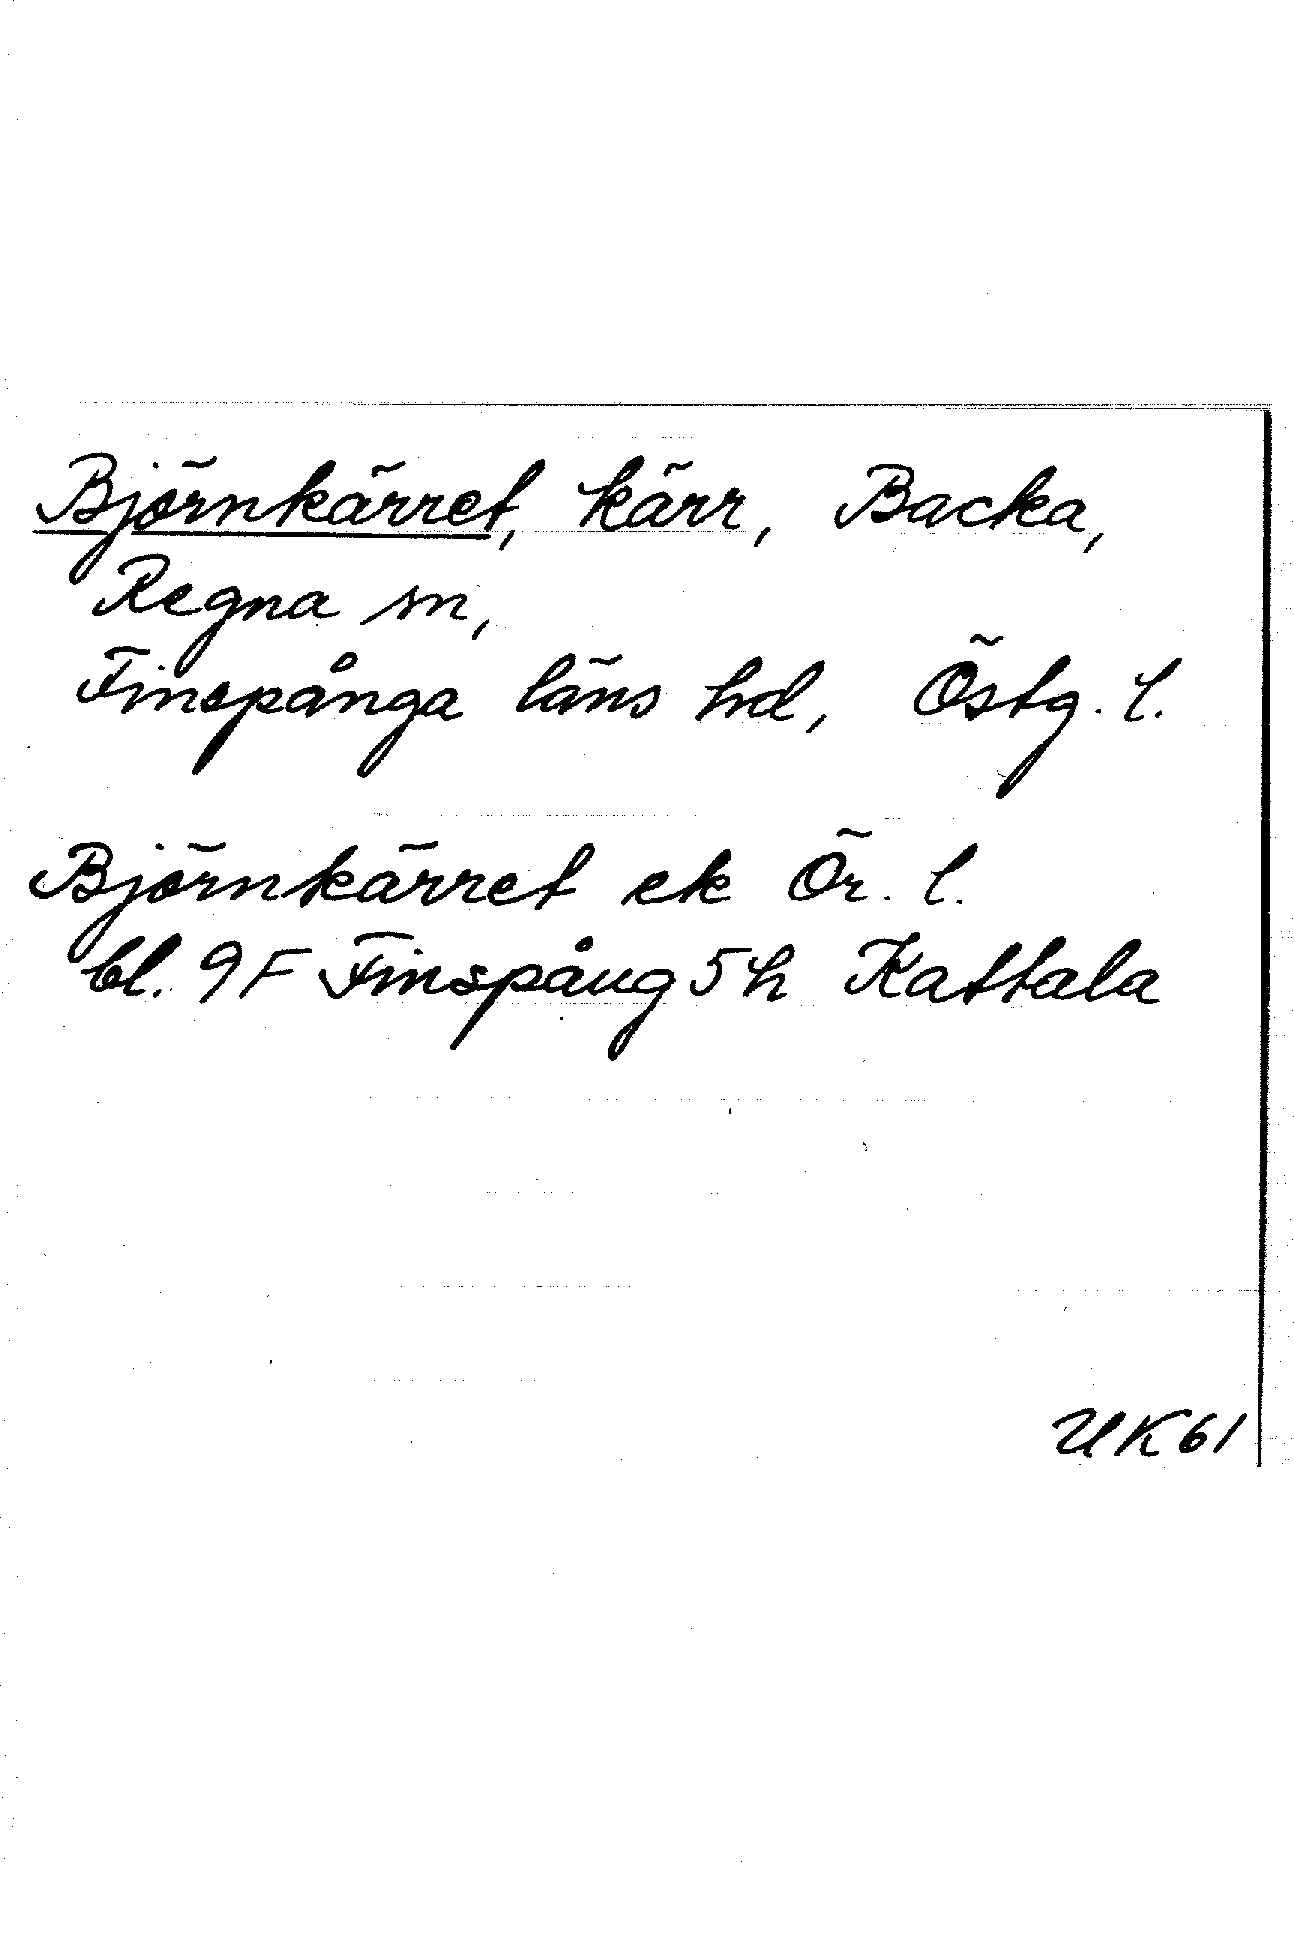 Björnkärret, kärr, Backa,
Regna sn,
Finspånga läns hd, Östg. l.
Björnkärret ek Ör. l.
bl. 9F Finspång 5h Kattala
UK61